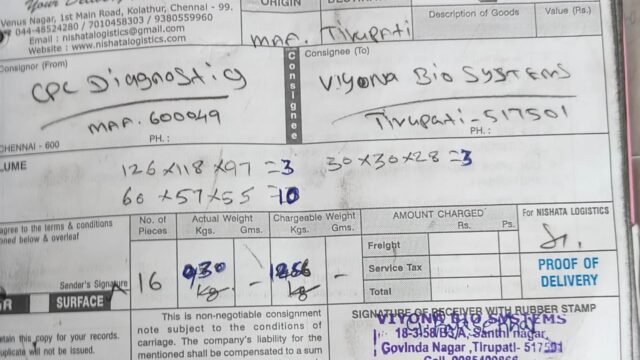 Your Delive
Venus Nagar, 1st Main Road, Kolathur, Chennai - 99.
044-48524280 / 7010458303 / 9380559960
Email : nishatalogistics@gmail.com
Website : www.nishatalogistics.com
ORIGIN
MAA. Tirupati
Description of Goods
Value (Rs.)
Consignor (From)
CPC Diagnostic
MAA. 600049
CHENNAI - 600
PH. :
Consignee
Consignee (To)
Viyona Bio Systems
Tirupati - 517501
PH. :
LUME
126 x 118 x 97 = 3
30 x 30 x 28 = 3
60 x 57 x 55 = 10
agree to the terms & conditions
oned below & overleaf
Sender's Signature
No. of Pieces
16
Actual Weight
Kgs. Gms.
930 kg -
Chargeable Weight
Kgs. Gms.
kg -
AMOUNT CHARGED
Rs. Ps.
Freight
Service Tax
Total
For NISHATA LOGISTICS
PROOF OF
DELIVERY
OR SURFACE
etain this copy for your records.
uplicate will not be issued.
This is non-negotiable consignment
note subject to the conditions of
carriage. The company's liability for
the mentioned shall be compensated to a sum
SIGNATURE OF RECEIVER WITH RUBBER STAMP
VIYONA BIO SYSTEMS
Santhi nagar,
Govinda Nagar, Tirupati- 517501